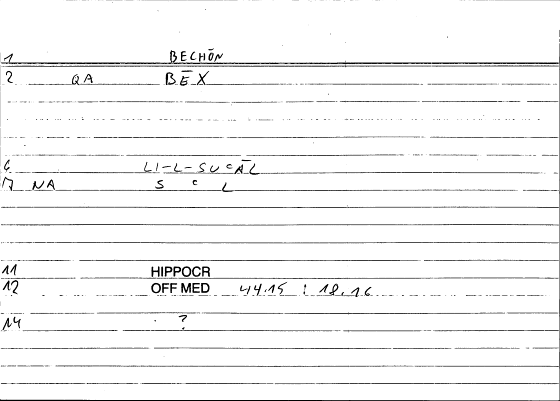 1 BECHŌN
2 QA BĒX
6 LI-L-SUʿĀL
7 NA S ʿ L
11 HIPPOCR
12 OFF MED 44.15 : 18.16
14 . ?